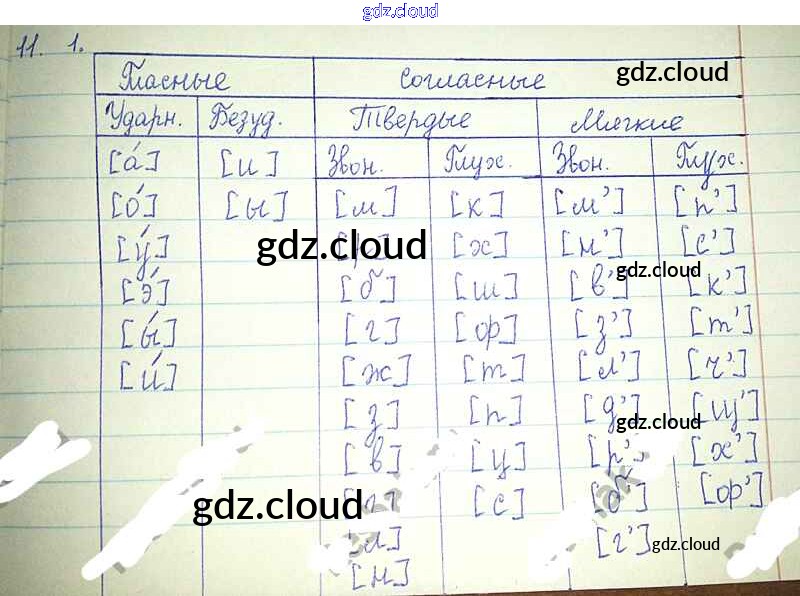 gdz.cloud
11. 1.
Гласные Согласные gdz.cloud
Ударн. Безуд. Твердые Мягкие
[а́] [и] Звон. Глух. Звон. Глух.
[о́] [ы] [м] [к] [м'] [п']
[у́] gdz.cloud [х] [н'] [с']
[э́] [б] [ш] [в'] gdz.cloud [к']
[ы́] [г] [ф] [з'] [т']
[и́] [ж] [т] [л'] [ч']
[з] [п] [д'] gdz.cloud [щ']
[в] [ц] [р'] [х']
gdz.cloud [с] [б'] [ф']
[л] [г'] gdz.cloud
[н]